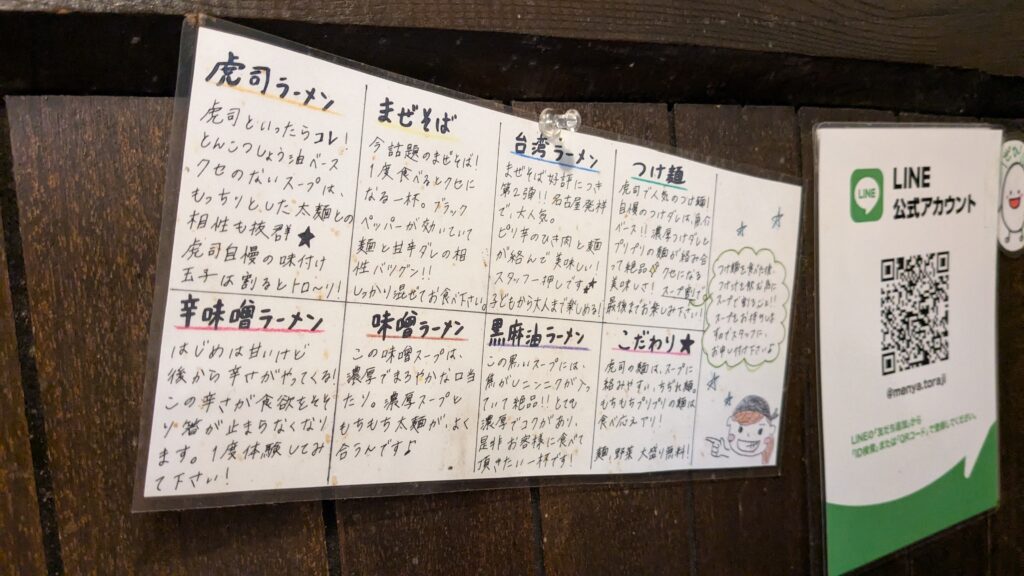 虎司ラーメン
虎司といったらコレ!
とんこつしょう油ベース
クセのないスープは、
もっちりとした太麺との
相性も抜群★
虎司自慢の味付け
玉子は割るとトロ〜リ!
まぜそば
今話題のまぜそば!
1度食べるとクセに
なる一杯。ブラック
ペッパーが効いていて
麺と甘辛ダレの相
性バツグン!!
しっかり混ぜてお食べ下さい。
台湾ラーメン
まぜそば好評につき
第2弾!!名古屋発祥
で、大人気。
ピリ辛のひき肉と麺
が絡んで美味しい!
スタッフ一押しです★
子どもから大人まで楽しめる!
つけ麺
虎司で人気のつけ麺!
自慢のつけダレは、魚介
ベース!!濃厚つけダレと
プリプリの麺が絡み合
って絶品☆クセになる
美味しさ!スープ割で
最後までお楽しみ下さい!
つけ麺を食べた後、
スープで割ること!!
スタッフに、
お申し付け下さい♪
辛味噌ラーメン
はじめは甘いけど
後から辛さがやってくる!
この辛さが食欲をそそ
り箸が止まらなくなり
ます。1度体験してみ
て下さい!
味噌ラーメン
この味噌スープは、
濃厚でまろやかな口当
たり。濃厚スープと
もちもち太麺が、よく
合うんです♪
黒麻油ラーメン
この黒いスープには、
焦がしニンニクが入っ
ていて絶品!!とても
濃厚でコクがあり、
是非お客様に食べて
頂きたい一杯です!
こだわり★
虎司の麺は、スープに
絡みやすい、ちぢれ麺。
もちもちプリプリの麺は
食べ応えアリ!
麺、野菜 大盛り無料!
LINE
LINE
公式アカウント
@menya.toraji
LINEの「友だち追加」から
「ID検索」または「QRコード」で登録してください。